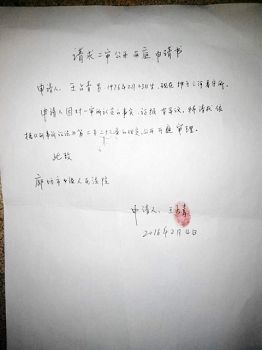 请求二审公开开庭申请书
申请人:王占青 男 1976年2月 日生,现在押于三河看守所。
申请人因对一审所认定的事实、证据 有异议,特请求依
据《刑事诉讼法》第二百二十三条的规定,公开开庭审理。
此致
廊坊市中级人民法院
申请人:王占青
2016年2月4日